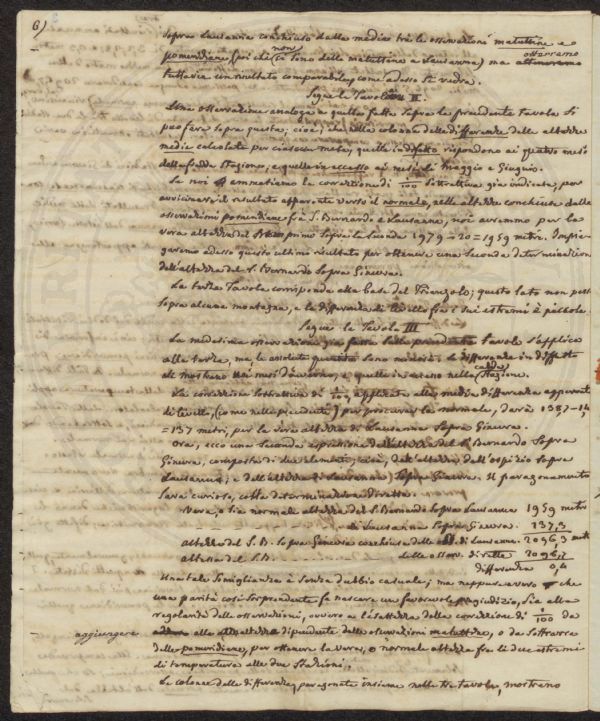 6)
sopra Lausanna conchiuso dalle medie tra le osservazioni mattutine e o
pomeridiane (poi che non ce sono delle mattutine a Lausanna) ma otterremo
tuttavia un risultato comparabile, come adesso si vedrà.
Segue la Tavola II.
Una osservazione analoga a quella fatta sopra la precedente tavola si
può fare sopra questa; cioè, che nella colonna delle differenze delle altezze
medie calcolate per ciascun mese, quelle in difetto rispondono ai quattro mesi
della fredda stagione, e quelle in eccesso ai mesi di Maggio e Giugno.
Se noi ammettiamo la correzione di 1/100 sottrattiva, già indicata, per
avvicinare il risultato apparente verso il normale, nelle altezze conchiuse dalle
osservazioni pomeridiane fra S. Bernardo e Lausanna, noi avremmo per la
vera altezza del primo sopra la seconda 1979 - 20 = 1959 metri. Impie-
garemo adesso questo ultimo risultato per ottenere una seconda determinazione
dell'altezza del S. Bernardo sopra Ginevra.
La terza Tavola corrisponde alla base del Triangolo; questo lato non pass
sopra alcuna montagna, e la differenza di livello fra i suoi estremi è piccola.
Segue la Tavola III
La medesima osservazione già fatta sulle precedenti Tavole s'applica
alla terza, ma le assolute quantità sono minori: le differenze in difetto
si mostrano nei mesi d'inverno, e quelle in eccesso nella calda stagione.
La correzione sottrattiva di 1/100, applicata alla media differenza apparente
di livello, (come nelle precedenti) per procurar la normale, darà 138,7 - 1,4
= 137 metri, per la vera altezza di Lausanna sopra Ginevra.
Ora, ecco una seconda espressione dell'altezza del S. Bernardo sopra
Ginevra, composta di due elementi; cioè, dell'altezza dell'ospizio sopra
Lausanna; e dell'altezza di Lausanna sopra Ginevra. Il paragonamento
sarà curioso, colla determinazione diretta.
Vera, o sia normale altezza del S. Bernardo sopra Lausanna 1959 metri
di Lausanna sopra Ginevra. 137,3
altezza del S. B. sopra Ginevra conchiusa delle di Lausanna. 2096,3 metr
altezza del S. B. delle osserv. dirette 2096,7
differenza 0,4
Una tale somiglianza è senza dubbio casuale; ma neppure è vero che
una parità così sorprendente fa nascere un favorevole pregiudizio, sia alla
regolarità delle osservazioni, ovvero a l'esattezza della correzione di 1/100 da
aggiungere alle altezze dipendente delle osservazioni mattutine, o da sottrarre
delle pomeridiane, per ottenere la vera, o normale altezza fra li due estremi
di temperatura alle due Stazioni.
Le colonne delle differenze, paragonate insieme nelle tre tavole, mostrano